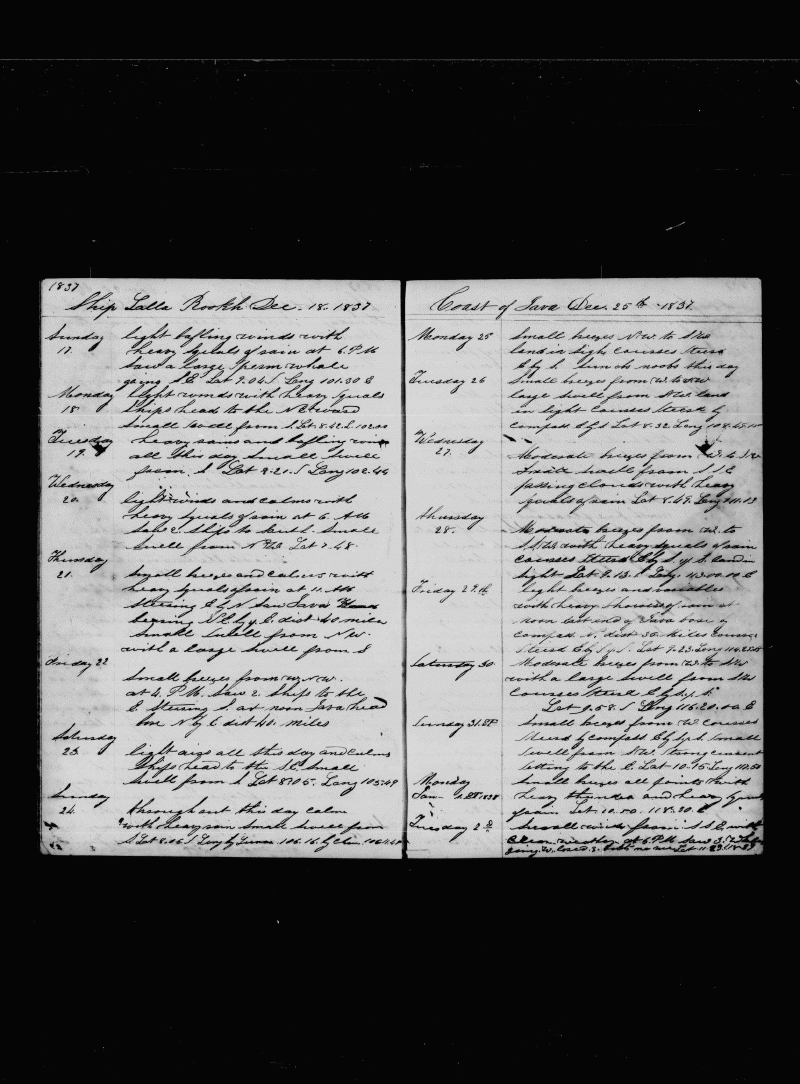 1837
Ship Lalla Rookh Dec. 18. 1837
Sunday light bafling winds with
17. heavy squals of rain at 6. P.M
Saw a large Sperm whale
going S.E. Lat 9.04 S Long 101.30 E
Monday light winds with heavy squals
18 Ships head to the
Small swell from S Lat 8.42 S. 102.00
Tuesday heavy rains and bafling winds
19. all this day Small swell
from S Lat 8.21. S Long 102.44
Wednesday
20. light winds and calms with
heavy squals of rain at 6 AM
Saw 2. Ships to South. Small
Swell from Lat 7.48.
Thursday
21. Small breezes and calms with
heavy squals of rain at 11. AM
Steering E by N Saw Java Head
bearing by E. dist 40 miles
Small Swell from N.W.
with a large Swell from S
Friday 22
Small breezes from N.W.
at 4. P.M. Saw 2. Ships to the
E Steering S. at noon Java head
bore N by E dist 40. miles
Saturday
23. light airs all this day and calms
Ships head to the S.E. Small
Swell from S Lat 8.05. Long 105.49
Sunday
24. throughout this day calm
with heavy rain Small Swell from
S Lat 8.06 S Long by Lunar 106.16 by Chro.
Coast of Java Dec. 25th 1837
Monday 25 Small breezes N.W. to
land in sight Courses Steerd
E by S. this day
Tuesday 26 Small breezes from W. to
large swell from land
in sight Courses Steerd by
compass Lat 8.32 Long 108.45
Wednesday
27. Moderate breezes from
Small swell from S S E
passing clouds with heavy
squals of rain Lat 8.49. Long 111.13
thursday
28. Moderate breezes from W. to
with heavy squals of rain
courses Steerd E by S. land in
Sight Lat 9.13. S Long. 113.00.00 E
Friday 29th light breezes and variables
with heavy showers of rain at
noon end of Java bore by
compass N. dist 35 Miles Courses
Steerd E by S. Lat 9.23. Long
Saturday 30 Moderate breezes from W. to
with a large swell from
Courses Steerd E by S.
Lat 9.58. S Long 116.20.00 E
Sunday 31.st Small breezes from W. courses
Steerd by compass E by S. Small
swell from Strong current
Setting to the E. Lat 10.15 Long
Monday Small breezes all points with
Jan 1.st 1838 heavy thunder and heavy squals
of rain Lat. 10.50. 118.20 E
Tuesday 2d Small winds from S S E, with
Clear weather at 6. P.M Saw
going W.